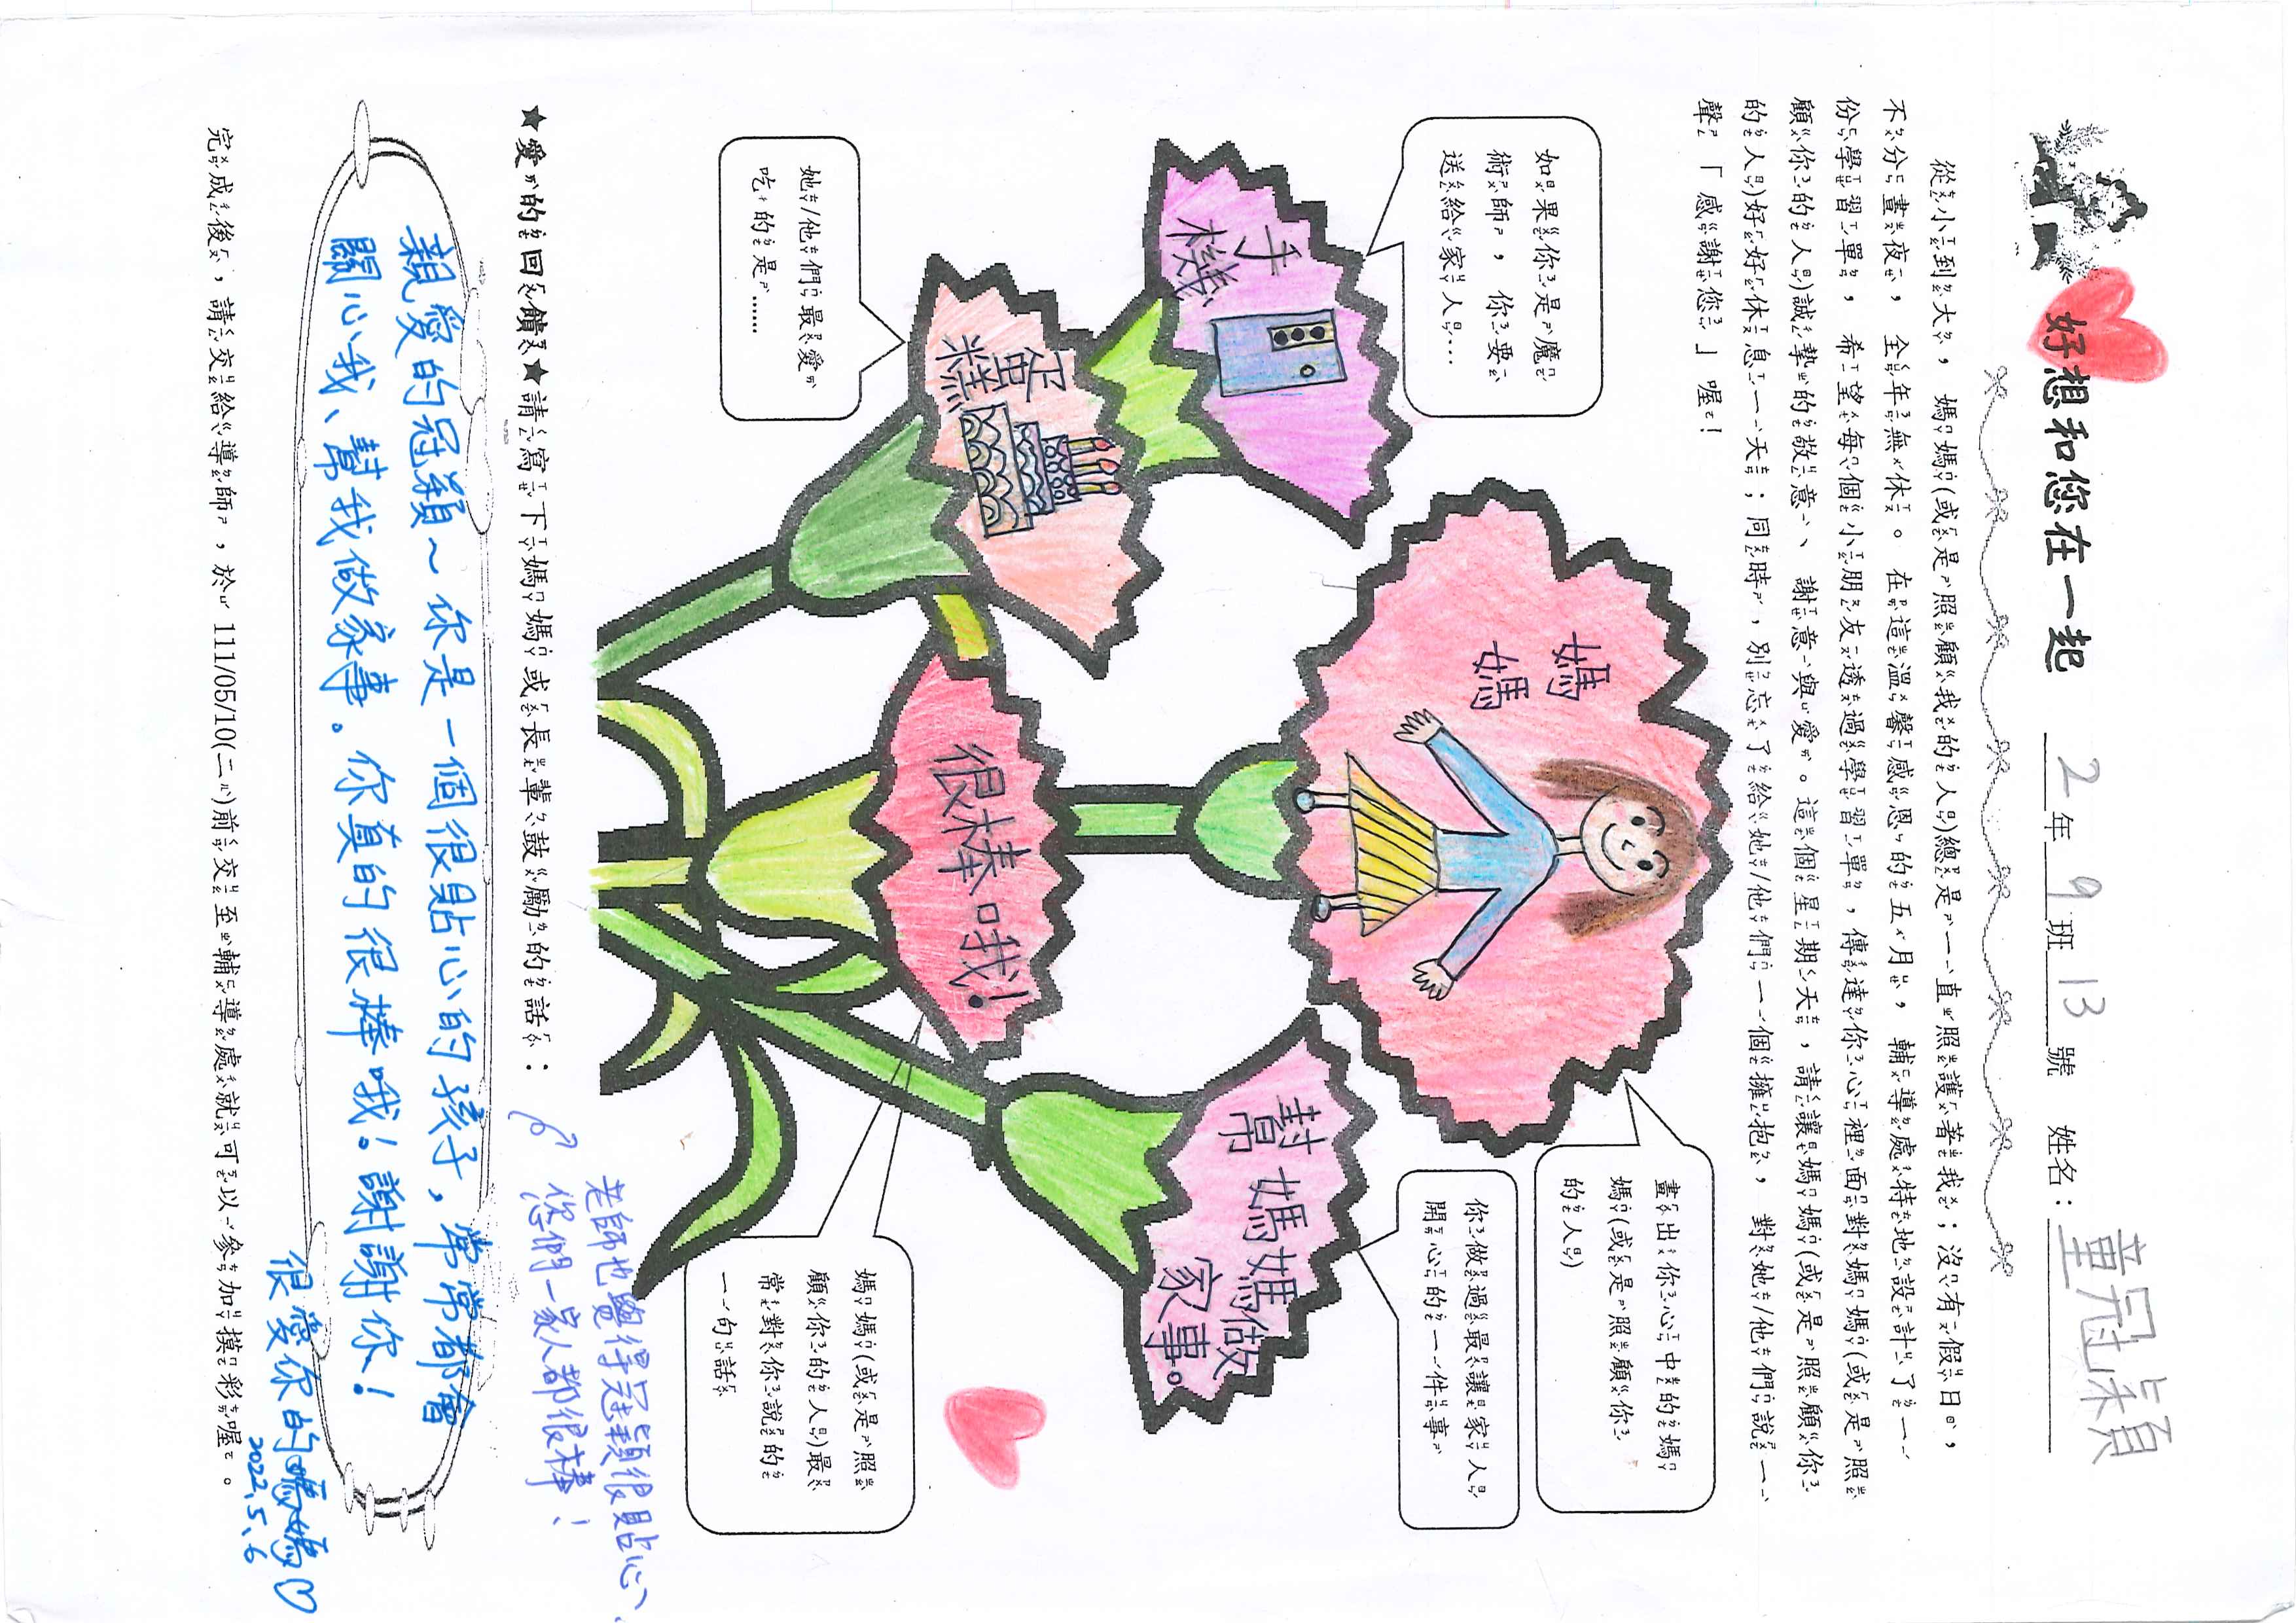 好想和您在一起 2年9班13號 姓名：童冠穎
從小到大，媽媽(或是照顧我的人)總是一直照護著我；沒有假日，
不分晝夜，全年無休。在這溫馨感恩的五月，輔導處特地設計了一
份學習單，希望每個小朋友透過學習單，傳達你心裡面對媽媽(或是照
顧你的人)誠摯的敬意、謝意與愛。這個星期天，請讓媽媽(或是照顧你
的人)好好休息一天；同時，別忘了給她/他們一個擁抱，對她/他們說一
聲「感謝您」喔！
如果你是魔
術師，你要
送給家人…
手機
畫出你心中的媽
媽(或是照顧你
的人)
媽媽
她/他們最愛
吃的是……
蛋糕
你做過最讓家人
開心的一件事
幫媽媽做
家事。
媽媽(或是照
顧你的人)最
常對你說的
一句話
很棒哦！
★愛的回饋★請寫下媽媽或長輩鼓勵的話：
老師也覺得冠穎很貼心、
您們一家人都很棒！
親愛的冠穎～你是一個很貼心的孩子，常常都會
關心我、幫我做家事。你真的很棒哦！謝謝你！
很愛你的媽媽♡
2022.5.6
完成後，請交給導師，於111/05/10(二)前交至輔導處就可以參加摸彩喔。